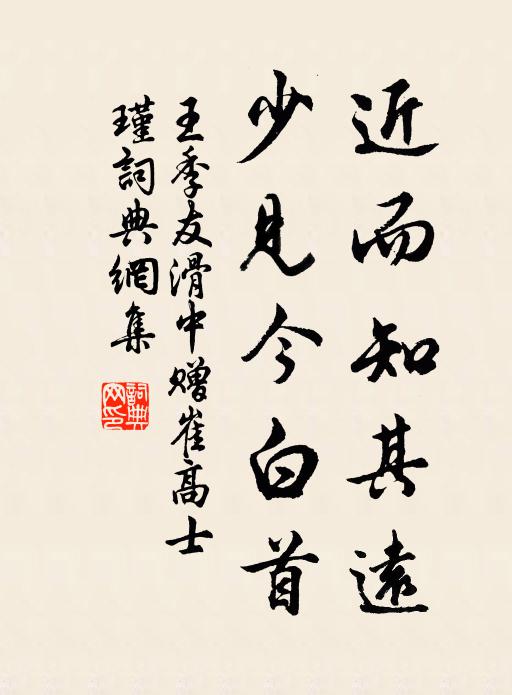 近而知其遠
少見今白首
王季友滑中赠崔高士
瑾詞典網集
詞典網印